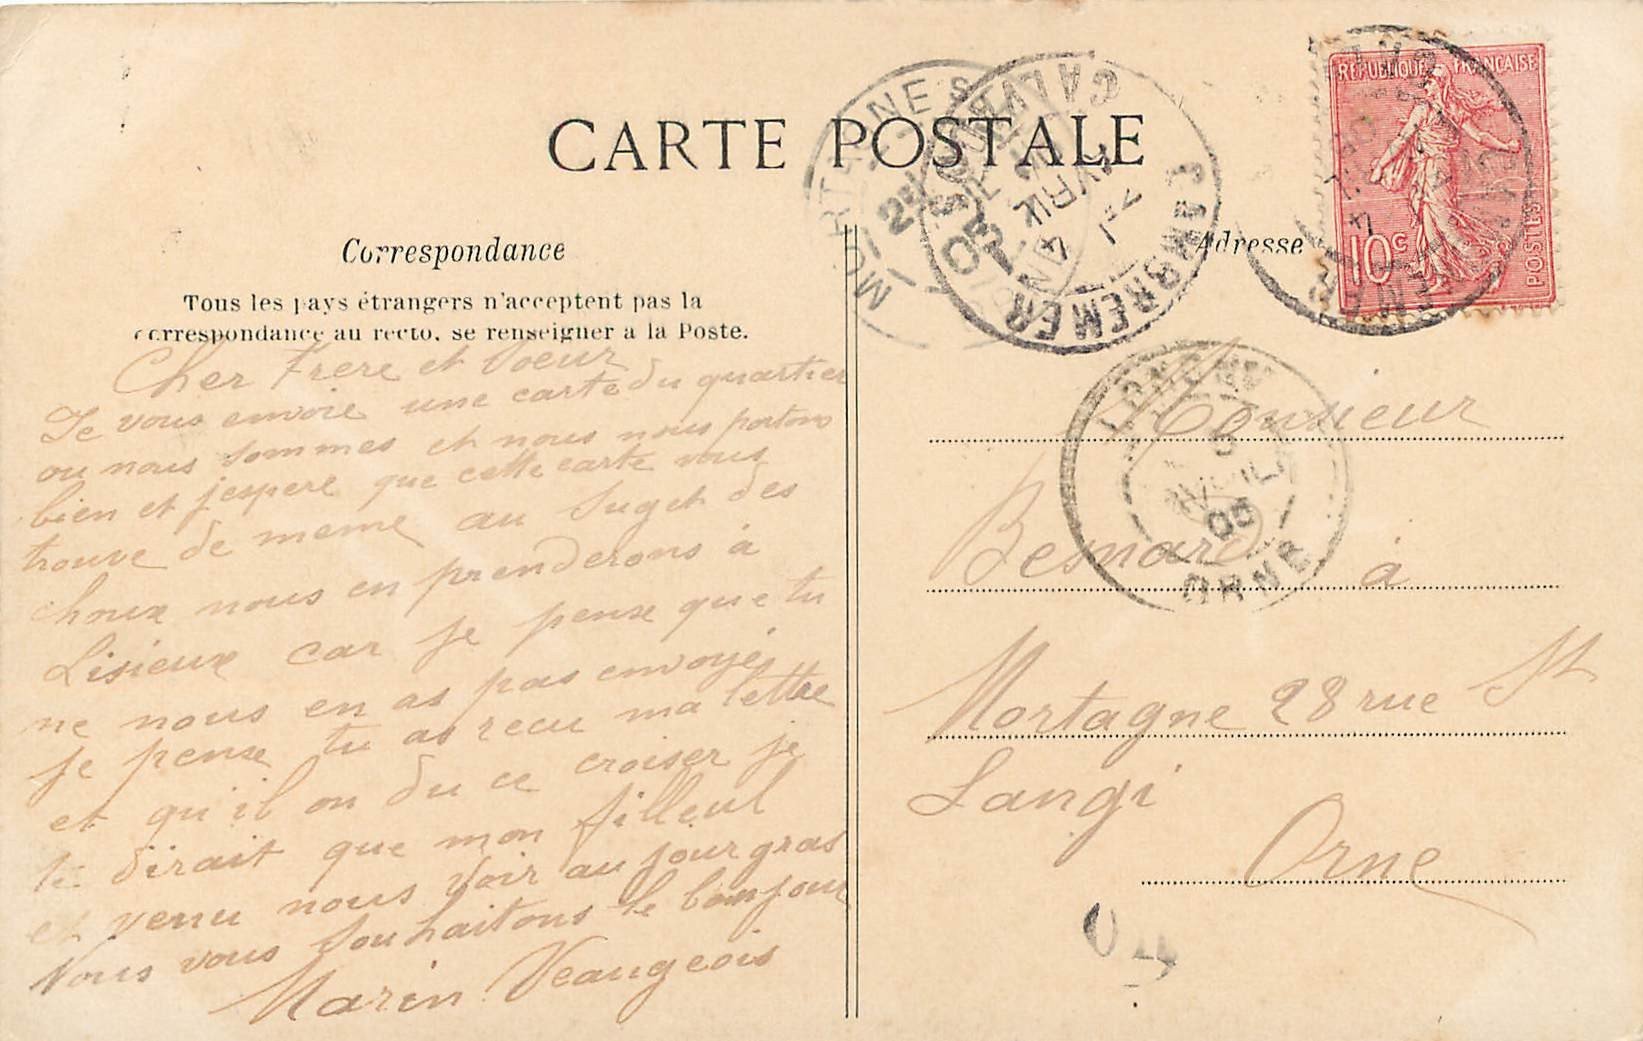 CARTE POSTALE
Correspondance
Adresse
Tous les pays étrangers n'acceptent pas la
correspondance au recto, se renseigner a la Poste.
Cher Frere et Soeur
Je vous envoie une carte du quartier
ou nous sommes et nous nous portons
bien et j'espere que cette carte vous
trouve de meme au Suget des
choux nous en prenderons à
Lisieux car je pense que tu
ne nous en as pas envoyés
je pense tu as recu ma lettre
et qu'il on du ce croiser je
te dirait que mon filleul
et venu nous voir au jour gras
Nous vous souhaitons le bonjour
Marin Veaugeois
Monsieur
Besnard à
Mortagne 28 rue St
Langi
Orne
REPUBLIQUE FRANCAISE
10c
POSTES
MORTAGNE
CALVADOS
CAMBREMER
4 AVRIL
LONGNY
5
AVRIL
05
ORNE